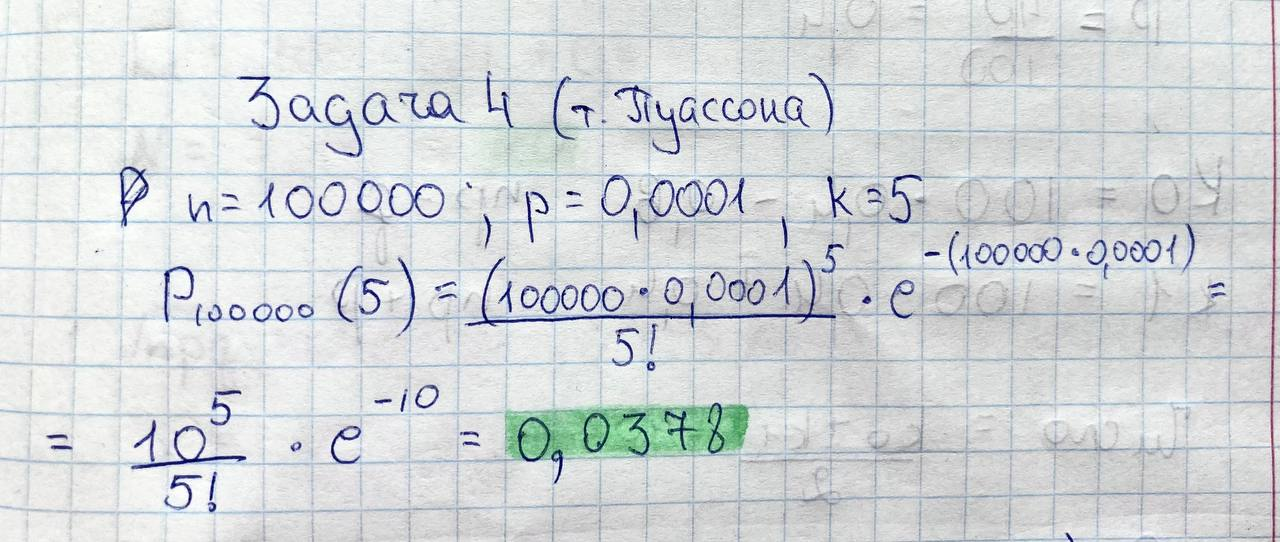 Задача 4 (т. Пуассона)
n = 100000 ; p = 0,0001 , k = 5
P₁₀₀₀₀₀ (5) = (100000 · 0,0001)⁵ / 5! · e^-(100000 · 0,0001) =
= 10⁵ / 5! · e^-10 = 0,0378